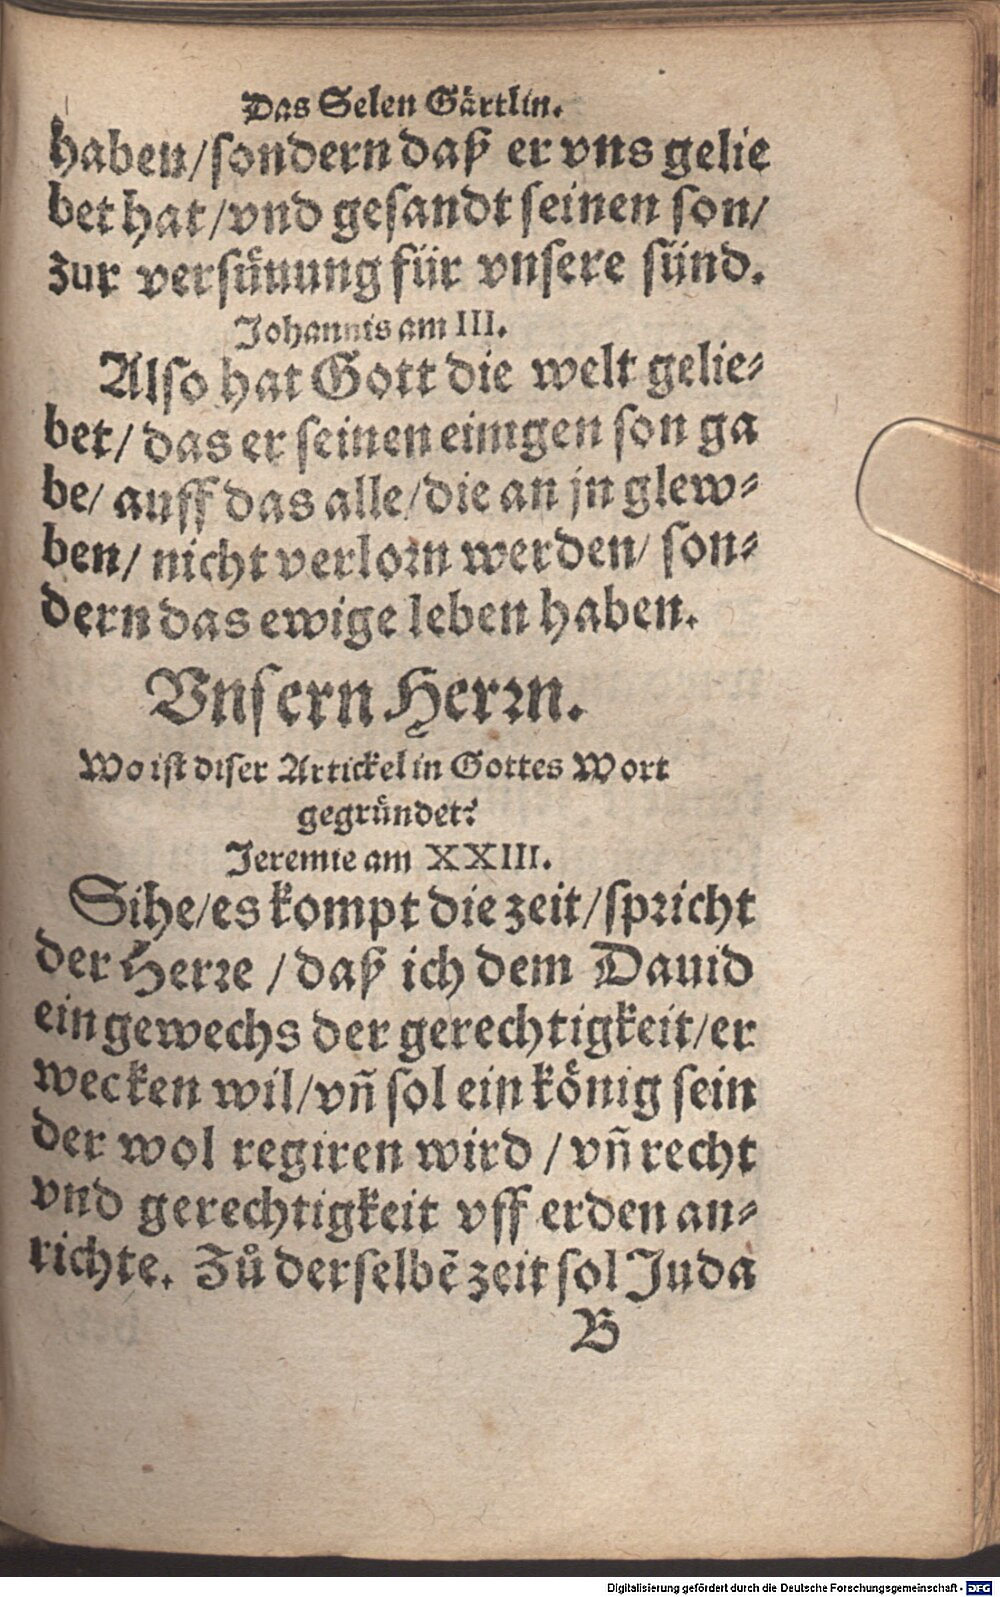 Das Selen Gärtlin.
haben/sondern daß er vns gelie
bet hat/vnd gesandt seinen son/
zur versuͤnung für vnsere sünd.
Johannis am III.
Also hat Gott die welt gelie⸗
bet/ das er seinen einigen son ga
be/ auff das alle/die an jn glew⸗
ben/ nicht verlorn werden/ son⸗
dern das ewige leben haben.
Vnsern Herrn.
Wo ist diser Artickel in Gottes Wort
gegruͤndet?
Jeremie am XXIII.
Sihe/es kompt die zeit/spricht
der Herre /daß ich dem Dauid
ein gewechs der gerechtigkeit/er
wecken wil/vñ sol ein koͤnig sein
der wol regiren wird /vñ recht
vnd gerechtigkeit vff erden an⸗
richte. Zů derselbē zeit sol Juda
B
Digitalisierung gefördert durch die Deutsche Forschungsgemeinschaft - DFG